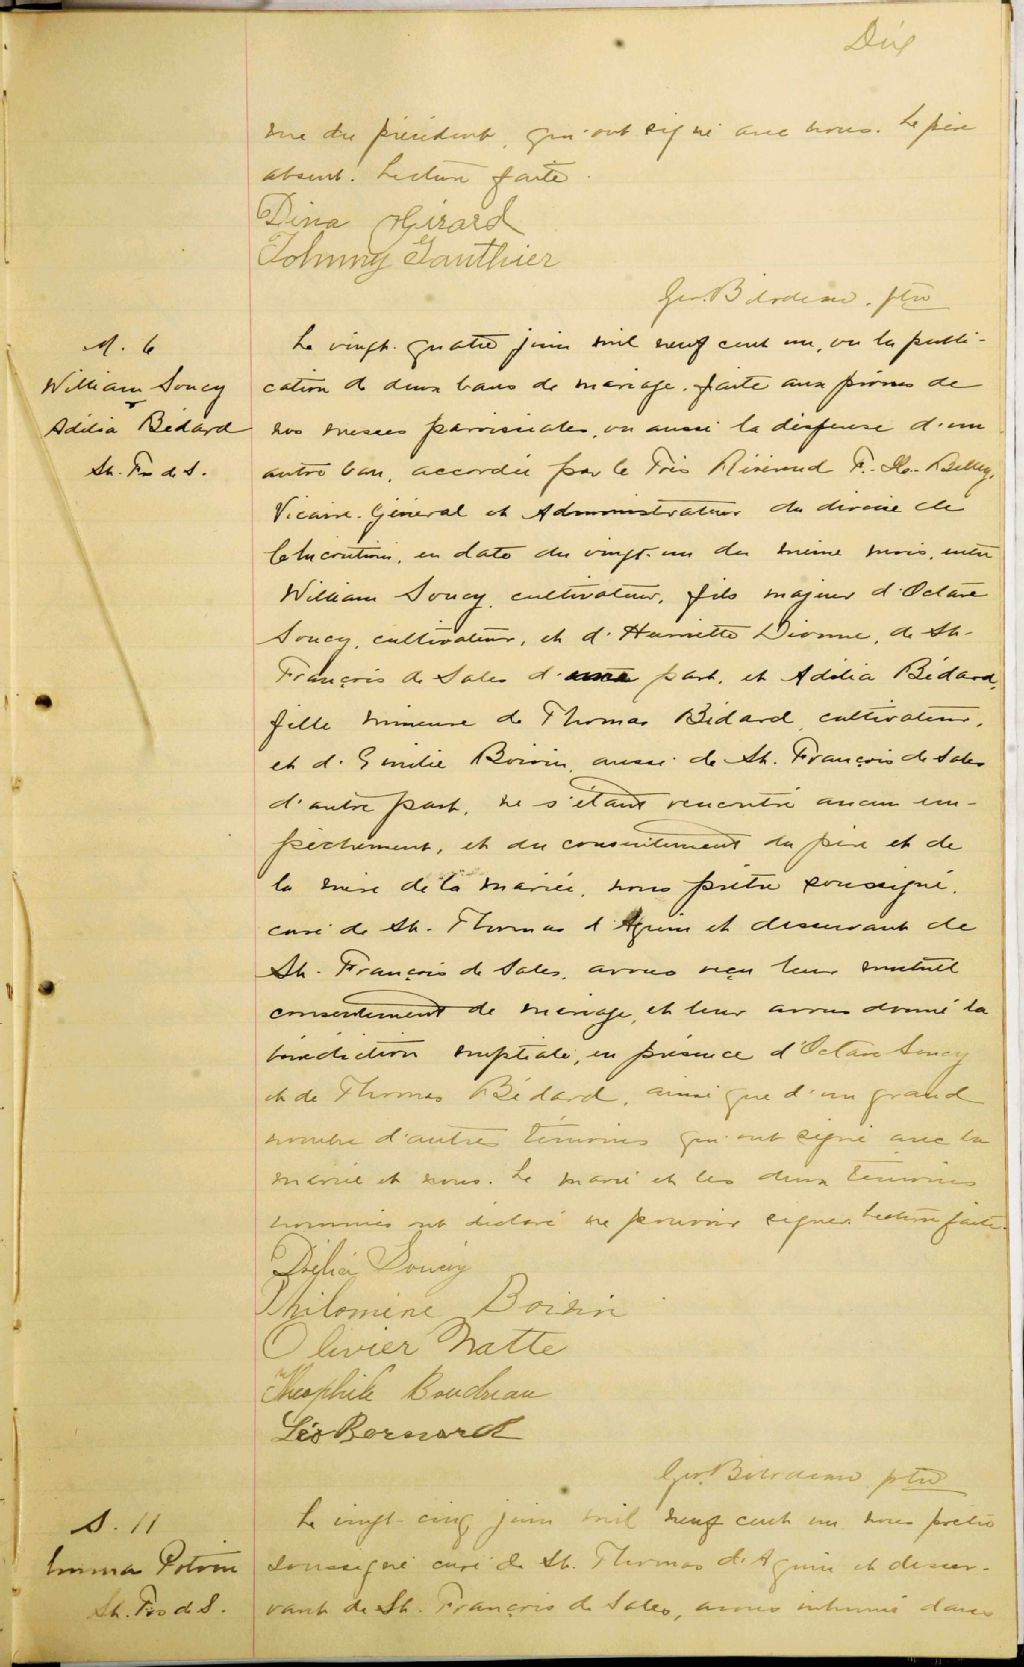 Dix
me du précédent, qui ont signé avec nous. Le père
absent. Lecture faite.
Dina Girard
Johnny Gauthier
Geo. Bilodeau. ptre
M. 6
William Soucy
&
Adélia Bédard
St. Frs de S.
Le vingt-quatre juin mil neuf cent un, vu la publi-
cation de deux bans de mariage, faite aux prônes de
nos messes paroissiales, vu aussi la dispense d'un
autre ban, accordée par le Très Révérend F.-X. Belley,
Vicaire-Général et Administrateur du diocèse de
Chicoutimi, en date du vingt-un du même mois, entre
William Soucy, cultivateur, fils majeur d'Octave
Soucy, cultivateur, et d'Henriette Dionne, de St-
François de Sales d'une part, et Adélia Bédard,
fille mineure de Thomas Bédard, cultivateur,
et d'Emilie Boivin, aussi de St. François de Sales
d'autre part, ne s'étant rencontré aucun em-
pêchement, et du consentement du père et de
la mère de la mariée, nous prêtre soussigné,
curé de St. Thomas d'Aquin et desservant de
St. François de Sales, avons reçu leur mutuel
consentement de mariage, et leur avons donné la
bénédiction nuptiale, en présence d'Octave Soucy
et de Thomas Bédard, ainsi que d'un grand
nombre d'autres témoins qui ont signé avec la
mariée et nous. Le marié et les deux témoins
nommés ont déclaré ne pouvoir signer. Lecture faite.
Délia Soucy
Philomène Boivin
Olivier Natte
Théophile Boudreau
Léo Bernard
Geo. Bilodeau ptre
S. 11
Emma Potvin
St. Frs de S.
Le vingt-cinq juin mil neuf cent un nous prêtre
soussigné curé de St. Thomas d'Aquin et desser-
vant de St. François de Sales, avons inhumé dans